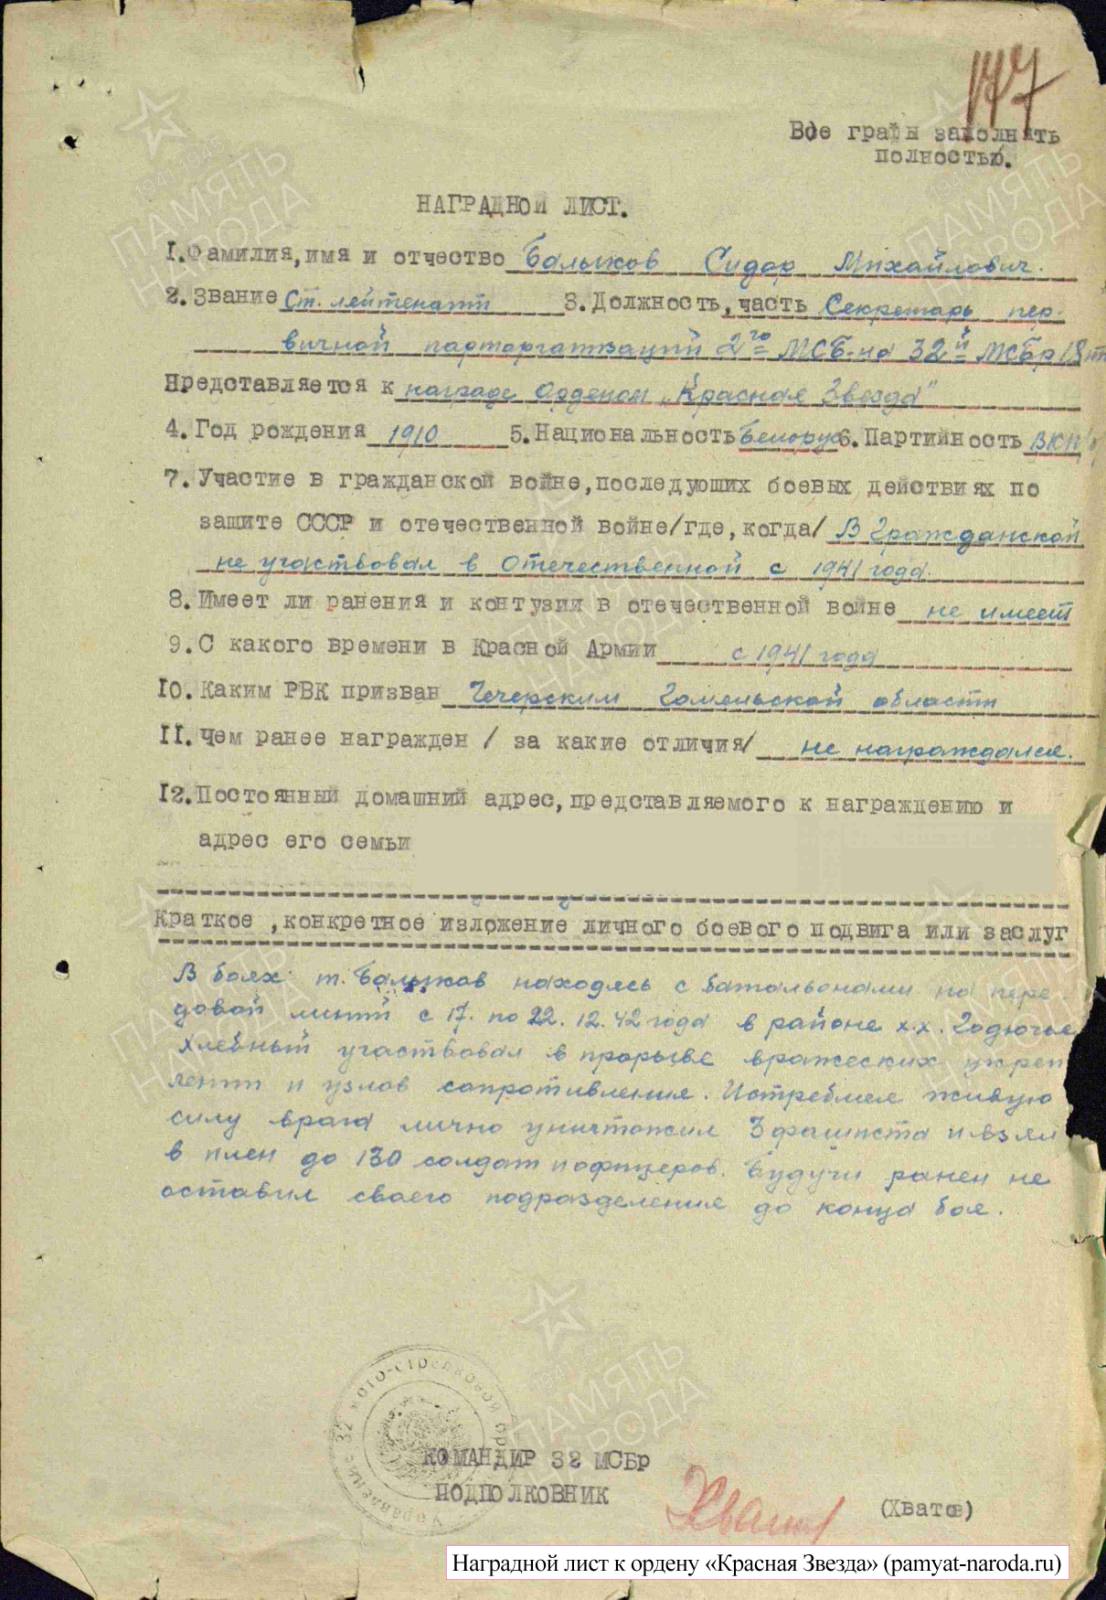 177
Все графы заполнять
полностью.
НАГРАДНОЙ ЛИСТ.
1. Фамилия, имя и отчество Балыков Сидор Михайлович.
2. Звание Ст. лейтенант 3. Должность, часть Секретарь пер-
вичной парторганизаций 2го МСБ-на 32й МСБр 18
Представляется к награде Орденом „Красная Звезда"
4. Год рождения 1910 5. Национальность Белорус 6. Партийность ВКП/б/
7. Участие в гражданской войне, последующих боевых действиях по
защите СССР и отечественной войне /где, когда/ В Гражданской
не участвовал в Отечественной с 1941 года.
8. Имеет ли ранения и контузия в отечественной войне не имеет
9. С какого времени в Красной Армии с 1941 года
10. Каким РВК призван Чечерским Гомельской области
11. Чем ранее награжден / за какие отличия/ не награждался.
12. Постоянный домашний адрес, представляемого к награждению и
адрес его семьи
Краткое, конкретное изложение личного боевого подвига или заслуг
В боях т. Балыков находясь с батальонами на пере-
довой линии с 17. по 22.12.42 года в районе х.х. Годючье
Хлебный участвовал в прорыве вражеских укреп
лении и узлов сопротивления. Истребляя живую
силу врага лично уничтожил 3 фашиста и взял
в плен до 130 солдат и офицеров. Будучи ранен не
оставил своего подразделения до конца боя.
Управление 32 мото-стрелковой бр
КОМАНДИР 32 МСБр
ПОДПОЛКОВНИК
Хватов
(Хватов)
Наградной лист к ордену «Красная Звезда» (pamyat-naroda.ru)
ПАМЯТЬ
НАРОДА